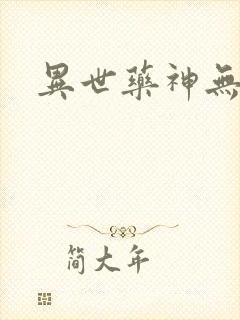 異世藥神無
简大年